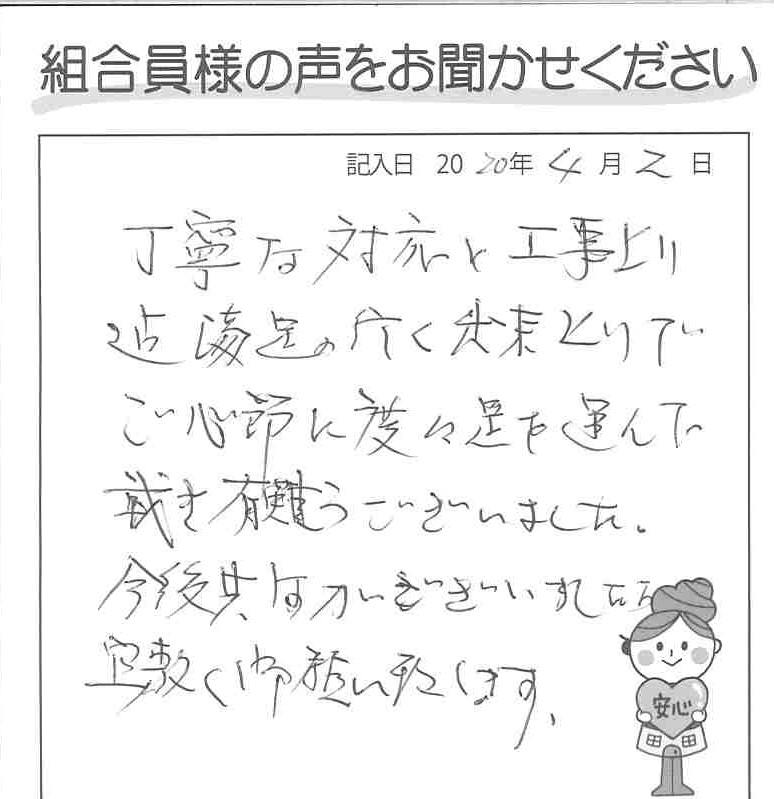 組合員様の声をお聞かせください
記入日 2020年 4月 2日
丁寧な対応と工事より
満足の行く出来とりて
ご心節に度々足を運んで
戴き有難うございました。
今後共
宜敷く御願い致します、
安心